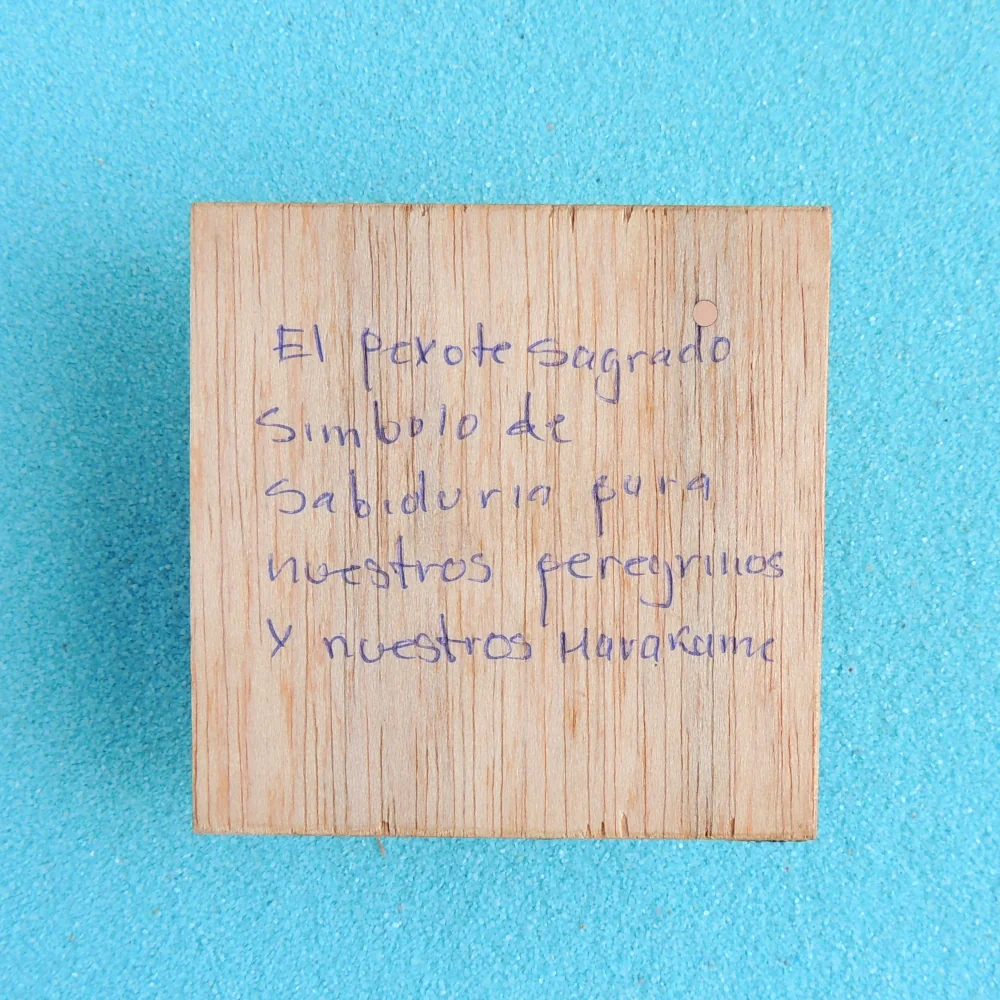 El pexote sagrado
Simbolo de
Sabiduria para
nuestros peregrinos
y nuestros Marakame